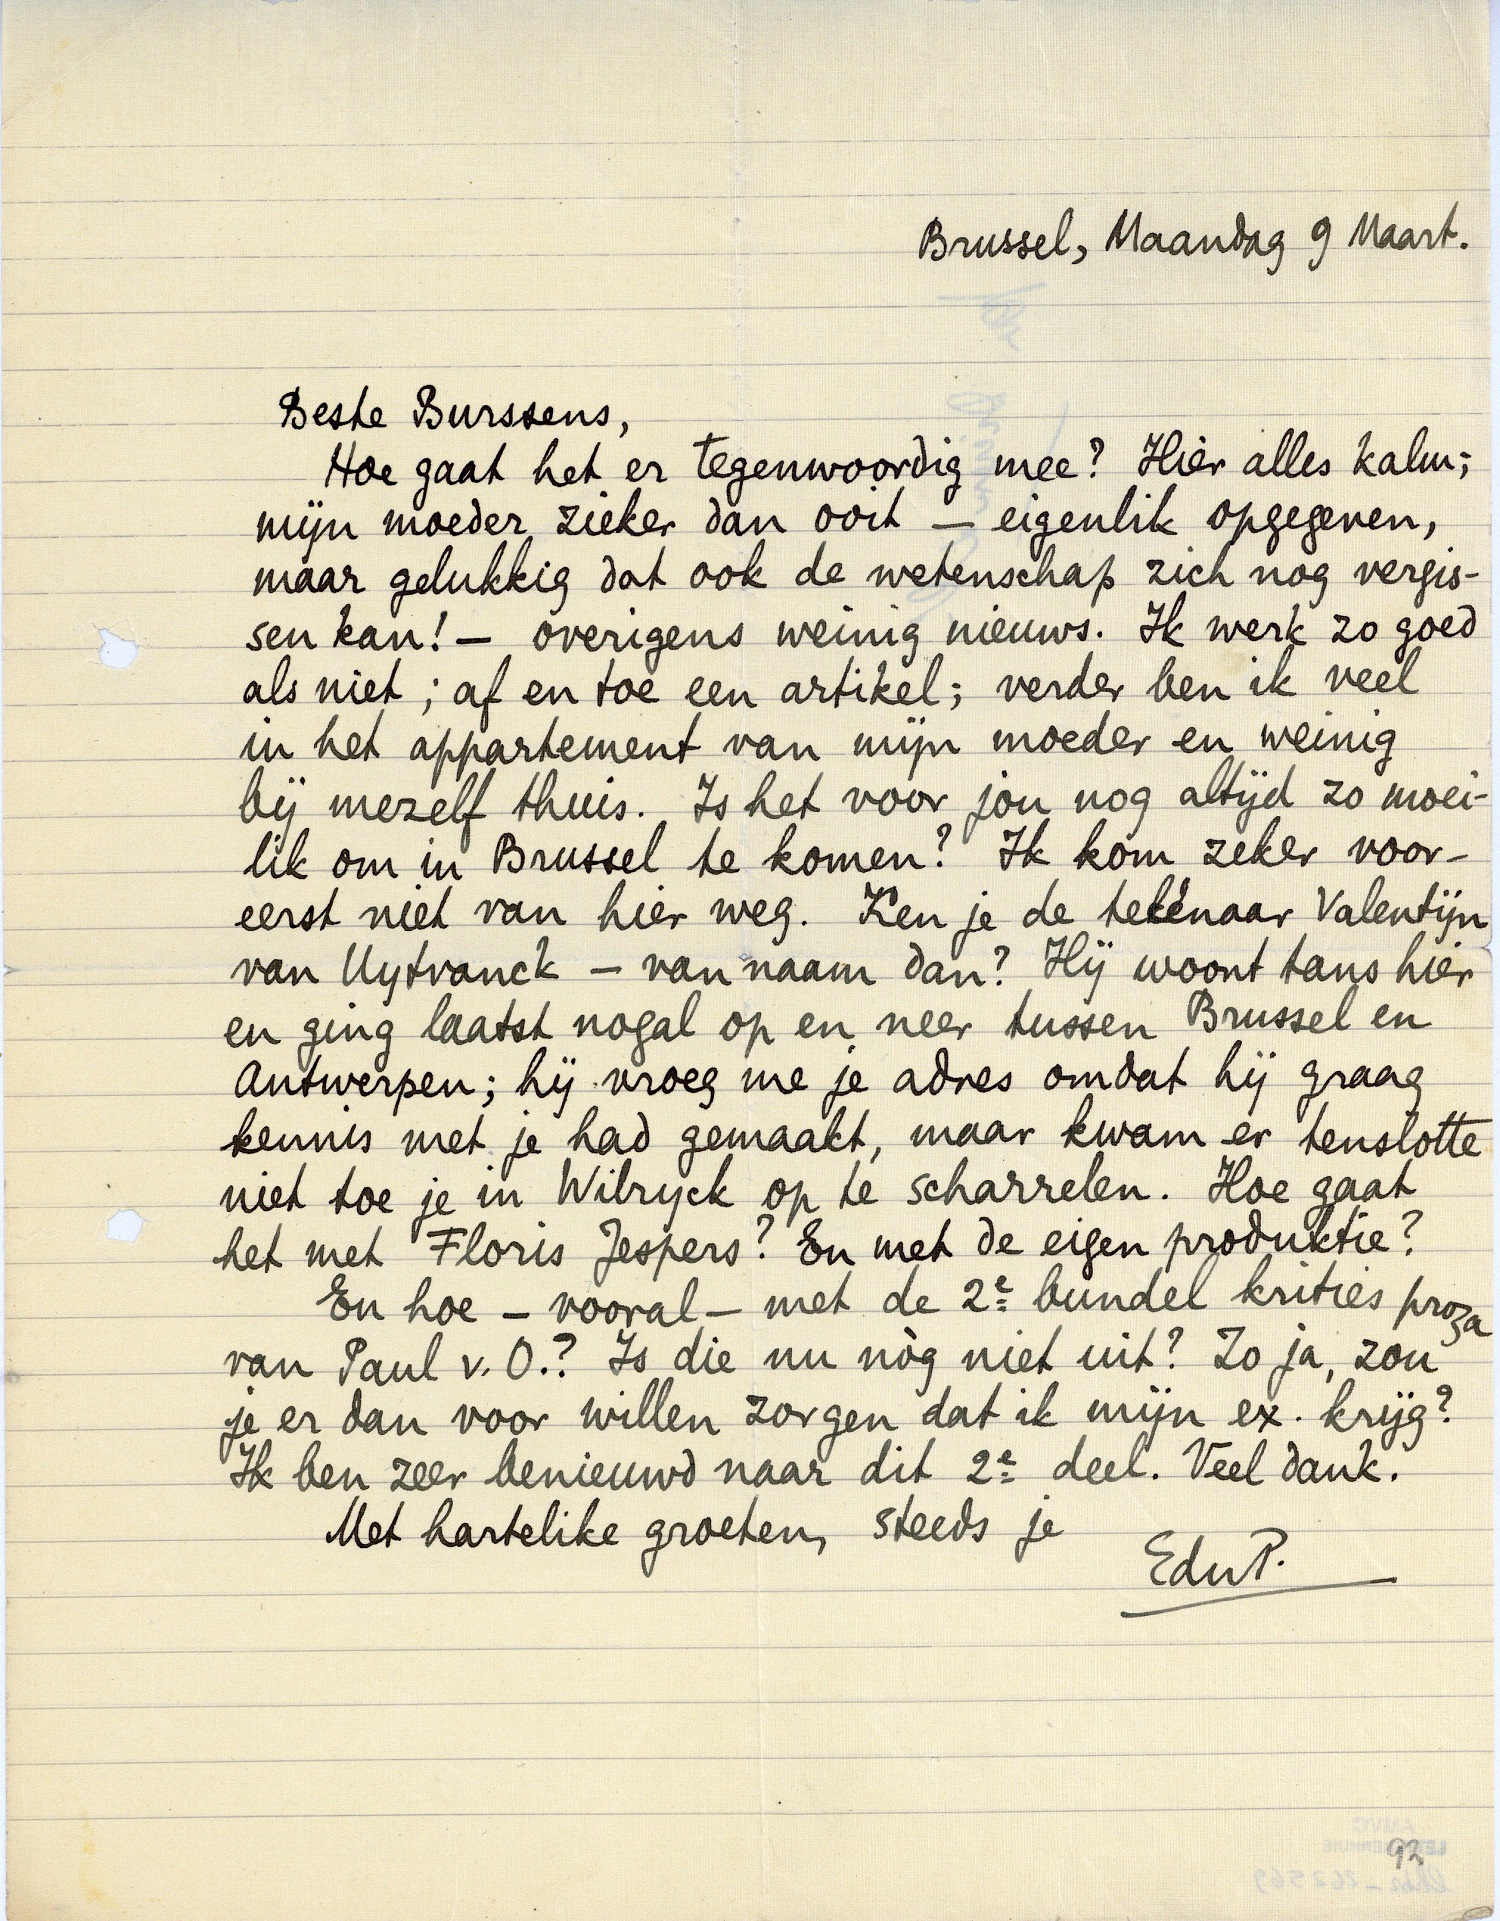 Brussel, Maandag 9 Maart.
Beste Burssens,
Hoe gaat het er tegenwoordig mee? Hier alles kalm;
mijn moeder zieker dan ooit — eigenlik opgegeven,
maar gelukkig dat ook de wetenschap zich nog vergis-
sen kan! — overigens weinig nieuws. Ik werk zo goed
als niet; af en toe een artikel; verder ben ik veel
in het appartement van mijn moeder en weinig
bij mezelf thuis. Is het voor jou nog altijd zo moei-
lik om in Brussel te komen? Ik kom zeker voor-
eerst niet van hier weg. Ken je de tekenaar Valentijn
van Uytvanck — van naam dan? Hij woont tans hier
en ging laatst nogal op en neer tussen Brussel en
Antwerpen; hij vroeg me je adres omdat hij graag
kennis met je had gemaakt, maar kwam er tenslotte
niet toe je in Wilryck op te scharrelen. Hoe gaat
het met Floris Jespers? En met de eigen produktie?
En hoe — vooral — met de 2e bundel krities proza
van Paul v. O.? Is die nu nòg niet uit? Zo ja, zou
je er dan voor willen zorgen dat ik mijn ex. krijg?
Ik ben zeer benieuwd naar dit 2e deel. Veel dank.
Met hartelike groeten, steeds je
EduP.
92